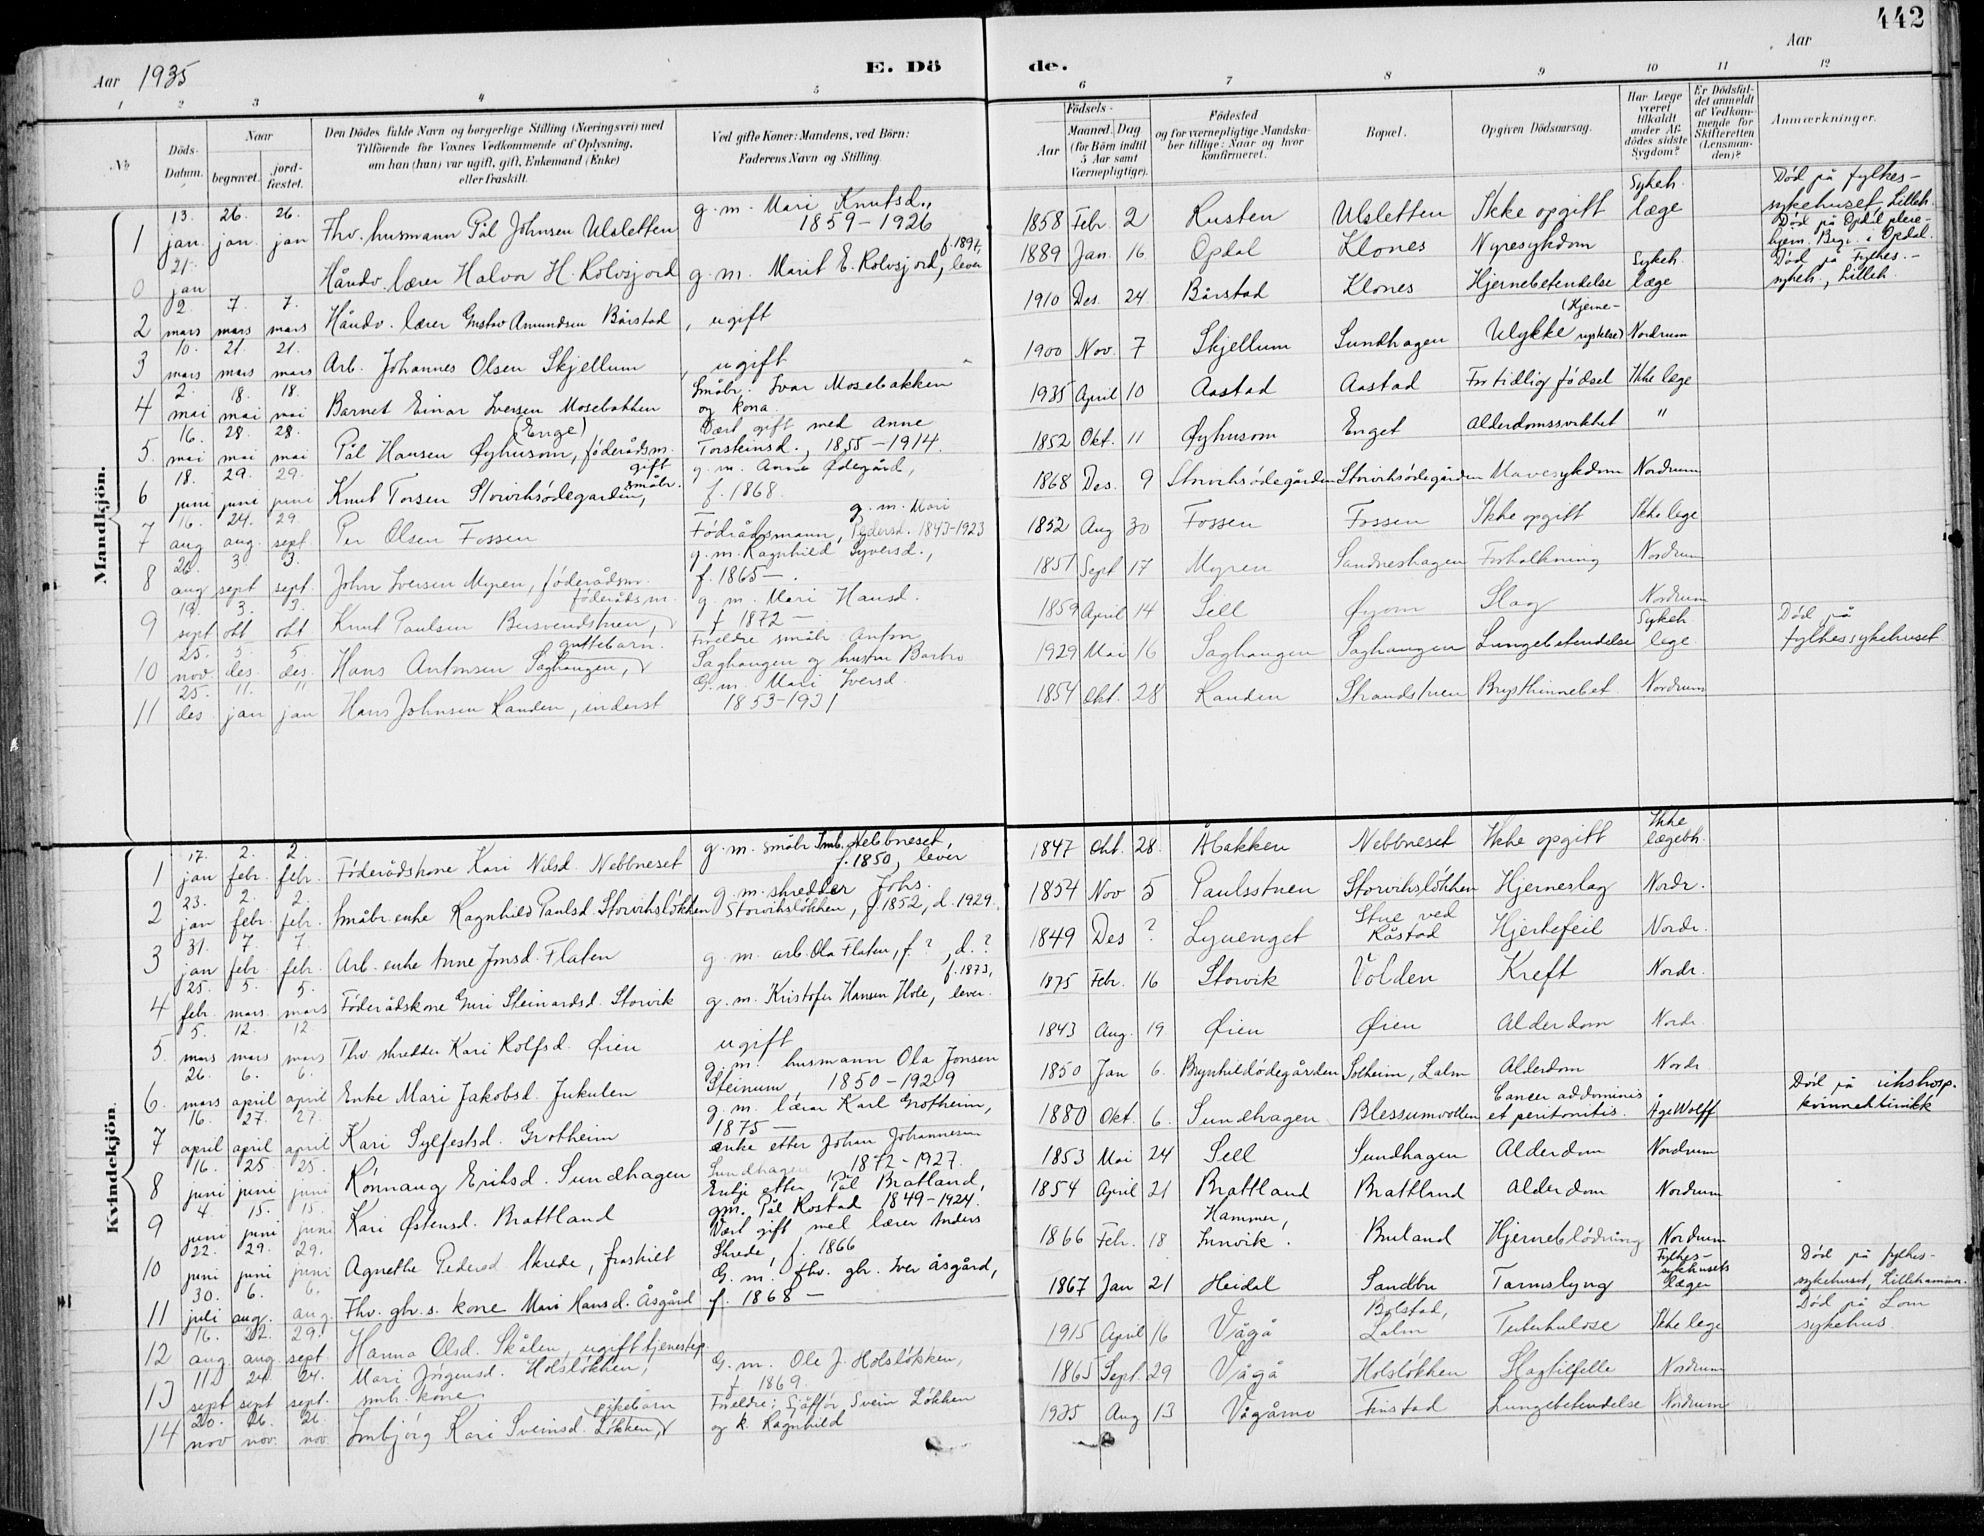 442
Aar 1935
E. Dö de.
Aar
1 2 3 4 5 6 7 8 9 10 11 12
№
Döds-Datum.
Naar
begravet.
jord-fæstet.
Den Dödes fulde Navn og borgerlige Stilling (Næringsvei) med
Tilföiende for Voxnes Vedkommende af Oplysning,
om han (hun) var ugift, gift, Enkemand (Enke)
eller fraskilt.
Ved gifte Koner: Mandens, ved Börn:
Faderens Navn og Stilling.
Födsels-
Aar
Maaned. Dag
(for Börn indtil
5 Aar samt
Værnepligtige).
Födested
og for værnepligtige Mandska-
ber tillige: Naar og hvor
konfirmeret.
Bopæl.
Opgiven Dödsaarsag.
Har Læge
været
tilkaldt
under Af-
dödes sidste
Sygdom?
Er Dödsfal-
det anmeldt
af Vedkom-
mende for
Skifteretten
(Lensman-
den)?
Anmærkninger.
Mandkjön.
1 13. jan 26. jan. 26. jan Fhv. husmann Pål Johnsen Ulsletten g. m. Mari Knutsd., 1859-1926 1858 Febr 2 Rusten Ulsletten Ikke opgitt Sykeh. læge Død på fylkes-sykehuset, Lilleh.
0 21. jan Håndv. lærer Halvor H. Rolvsjord g. m. Marit E. Rolvsjord, f. 1897, lever 1889 Jan. 16 Opdal Klones Nyresykdom Død på Opdal pleie-hjem. Begr. i Opdal.
2 2 mars 7. mars 7. mars Håndv. lærer Gustav Amundsen Bårstad, ugift 1910 Des. 24 Bårstad Klones Hjernebetendelse Sykeh. læge Død på Fylkes-sykeh., Lilleh.
3 10. mars 21. mars 21. mars Arb. Johannes Olsen Skjellum, ugift 1900 Nov. 7 Skjellum Sundhagen Ulykke (Hjerne-rystelse) Nordrum
4 2. mai 18. mai 18. mai Barnet Einar Iversen Mosebakken Småbr. Ivar Mosebakken og kona 1935 April 10 Aastad Aastad For tidlig fødsel Ikke læge
5. 16. mai 28. mai 28. mai Pål Hansen Øyhusom, (Enge) føderådsm. Vært gift med Anne Torsteinsd., 1855-1914. 1852 Okt. 11 Øyhusom Enget Alderdomssvakhet "
6 18. juni 29. juni 29. juni Knut Torsen Storviksødegarden, gift småbr. g. m. Anne Ødegård, f. 1868. 1868 Des. 9 Storviksødegården Storviksødegården Mavesykdom Nordrum
7 16. aug 24. aug. 29. sept Per Olsen Fossen Føderådsmann, g. m. Mari Pedersd. 1843-1923 1852 Aug 30 Fossen Fossen Ikke opgitt Ikke lege
8 26. aug 3 sept 3. sept. John Iversen Myren, føderådsm. g. m. Ragnhild Syversd., f. 1865-. 1851 Sept 17 Myren Sandneshagen Forkalkning Nordrum
9 19. sept 3. okt 3. okt Knut Paulsen Busvendstuen, føderådsm. g. m. Mari Hansd. f 1872 - 1859 April 14 Sell Øyom Slag Nordrum
10 25. nov 5. des. 5. des. Hans Antonsen Saghaugen, guttebarn. Foreldre småbr. Anton Saghaugen og hustru Barbro 1929 Mai 16 Saghaugen Saghaugen Lungebetendelse Sykeh lege Død på fylkessykehuset
11 25. des 11. jan 11 jan Hans Johnsen Randen, inderst G. m. Mari Iversd. 1853-1931 1854 Okt. 28 Randen Strandstuen Brysthinnebet. Nordrum
Kvindekjön.
1 17. jan 2. febr. 2. febr. Føderådskone Kari Nilsd. Nebbneset g. m. småbr. Imb. Nebbneset, f. 1850, lever 1847 Okt. 28. Åbakken Nebbneset Ikke opgitt Ikke lægebh.
2 23. jan 2. febr 2. febr. Småbr. enke Ragnhild Paulsd. Storvikslökken g. m. skredder Johs. Storvikslökken, f 1852, d. 1929. 1854 Nov 5 Paulsstuen Storvikslökken Hjerneslag Nordr.
3 31. jan 7. febr. 7. febr. Arb. enke Anne Jonsd. Flaten g. m. arb. Ola Flaten, f. ?, d. ? 1849 Des ? Lyuenget Stue ved Råstad Hjertefeil Nordr.
4 25. febr. 5. mars. 5. mars Føderådskone Guri Steinarsd. Storvik g. m. Kristofer Hansen Hole, f. 1873, lever. 1875 Febr. 16 Storvik Volden Kreft Nordr.
5. 5. mars 12. mars 12 mars Fhv. skredder Kari Rolfsd. Øien ugift 1843 Aug. 19 Øien Øien Alderdom Nordr.
6. 26. mars 6. april 6. april Enke Mari Jakobsd. Jukulen g. m. husmann Ola Jonsen Steinum 1850-1929 1850 Jan 6. Brynhildsødegården Solheim, Lalm Alderdom Nordr.
7 16. april 27. april 27. april Kari Sylfestsd. Grotheim g. m. lærer Karl Grotheim, 1875 - 1880 Okt. 6. Sundhagen Blessumvollen Cancer addominis et peritonitis. Åge Wolff Død på rikshosp. kvinneklinikk
8 16. juni 25 juni 25. juni Rönnaug Eriksd. Sundhagen enke etter Johan Johannesen Sundhagen 1872-1927. 1853 Mai 24 Sell Sundhagen Alderdom Nordrum
9 4. juni 15. juni 15. juni Kari Østensd. Brattland Enkje etter Pål Brattland, gm. Pål Rostad 1849-1924. 1854 April 21 Brattland Brattland Alderdom Nordrum
10 22. juni 29. juni 29. juni Agnethe Pedersd Skrede, fraskilt Vært gift med lærer Anders Skrede, f. 1866 1866 Febr. 18 Hammer, Innvik. Bruland Hjerneblödning Nordrum
11 30. juli 6. aug. 6. aug. Fhv. gbr.s. kone Mari Hansd. Åsgård G. m. fhv. gbr. Iver Åsgård, f. 1868 - 1867 Jan 21 Heidal Sandbu Tarmslyng Fylkes-sykehusets læger Død på fylkes-sykehuset, Lillehammer.
12 16. aug 22. aug. 29. sept. Hanna Olsd. Skålen, ugift tjenestep. 1915 April 16 Vågå Bolstad, Lalm Tuberkulose Ikke lege Død på Lom sykehus
13 11. sept 24 sept 24. sept. Mari Jörgensd. Holslökken, smbr. kone G. m. Ole J. Holslökken, f 1869. 1865 Sept. 29 Vågå Holslökken Slagtilfelle Nordrum
14 20. nov 26. nov. 26. nov Imbjörg Kari Sveinsd. Lökken, pikebarn Foreldre: Sjåfför Svein Lökken og k. Ragnhild 1935 Aug 13 Vågåmo Finstad Lungebetendelse Nordrum